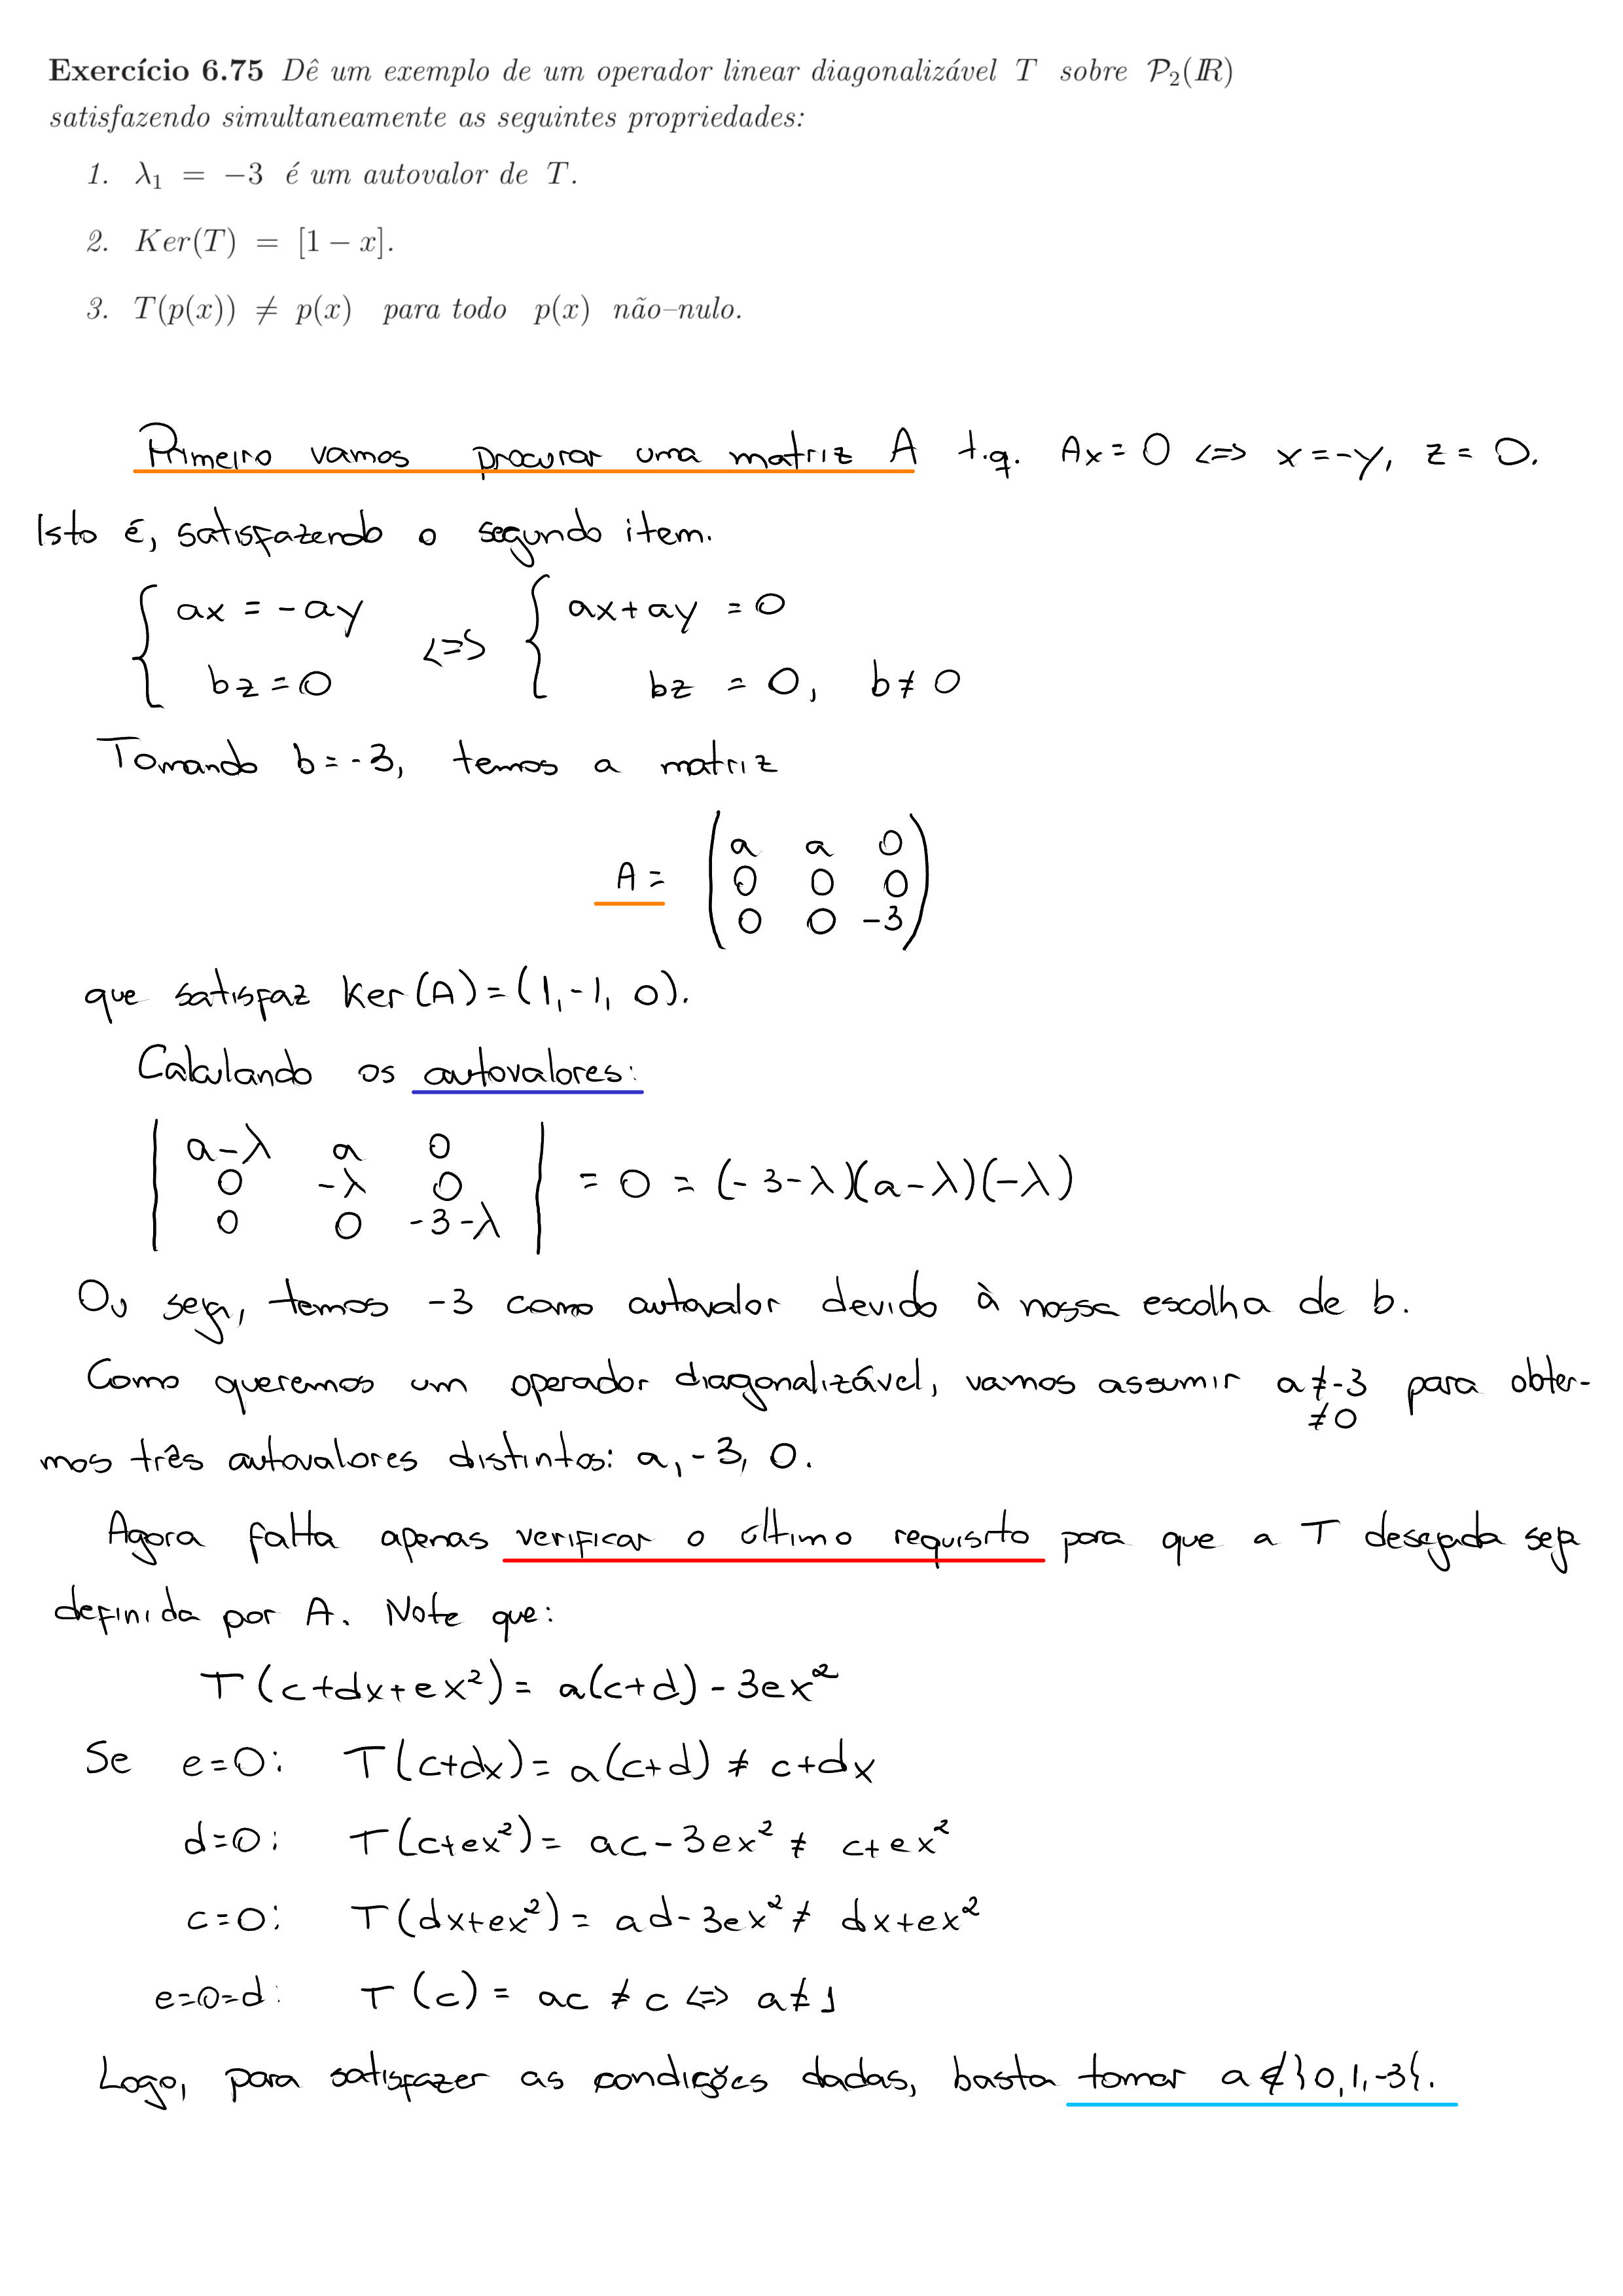 Exercício 6.75 Dê um exemplo de um operador linear diagonalizável T sobre P₂(IR)
satisfazendo simultaneamente as seguintes propriedades:
1. λ₁ = −3 é um autovalor de T.
2. Ker(T) = [1 − x].
3. T(p(x)) ≠ p(x) para todo p(x) não–nulo.
Primeiro vamos procurar uma matriz A t.q. Ax = 0 <=> x = -y, z = 0.
Isto é, satisfazendo o segundo item.
{ ax = -ay <=> { ax + ay = 0
bz = 0 bz = 0, b ≠ 0
Tomando b = -3, temos a matriz
A = ( a a 0
0 0 0
0 0 -3 )
que satisfaz Ker(A) = (1, -1, 0).
Calculando os autovalores:
| a-λ a 0 |
| 0 -λ 0 | = 0 = (-3-λ)(a-λ)(-λ)
| 0 0 -3-λ |
Ou seja, temos -3 como autovalor devido à nossa escolha de b.
Como queremos um operador diagonalizável, vamos assumir a ≠ -3 para obter-
≠ 0
mos três autovalores distintos: a, -3, 0.
Agora falta apenas verificar o último requisito para que a T desejada seja
definida por A. Note que:
T(c+dx+ex²) = a(c+d) - 3ex²
Se e=0: T(c+dx) = a(c+d) ≠ c+dx
d=0: T(c+ex²) = ac - 3ex² ≠ c+ex²
c=0: T(dx+ex²) = ad - 3ex² ≠ dx+ex²
e=0=d: T(c) = ac ≠ c <=> a ≠ 1
Logo, para satisfazer as condições dadas, basta tomar a ∉ }0, 1, -3{.